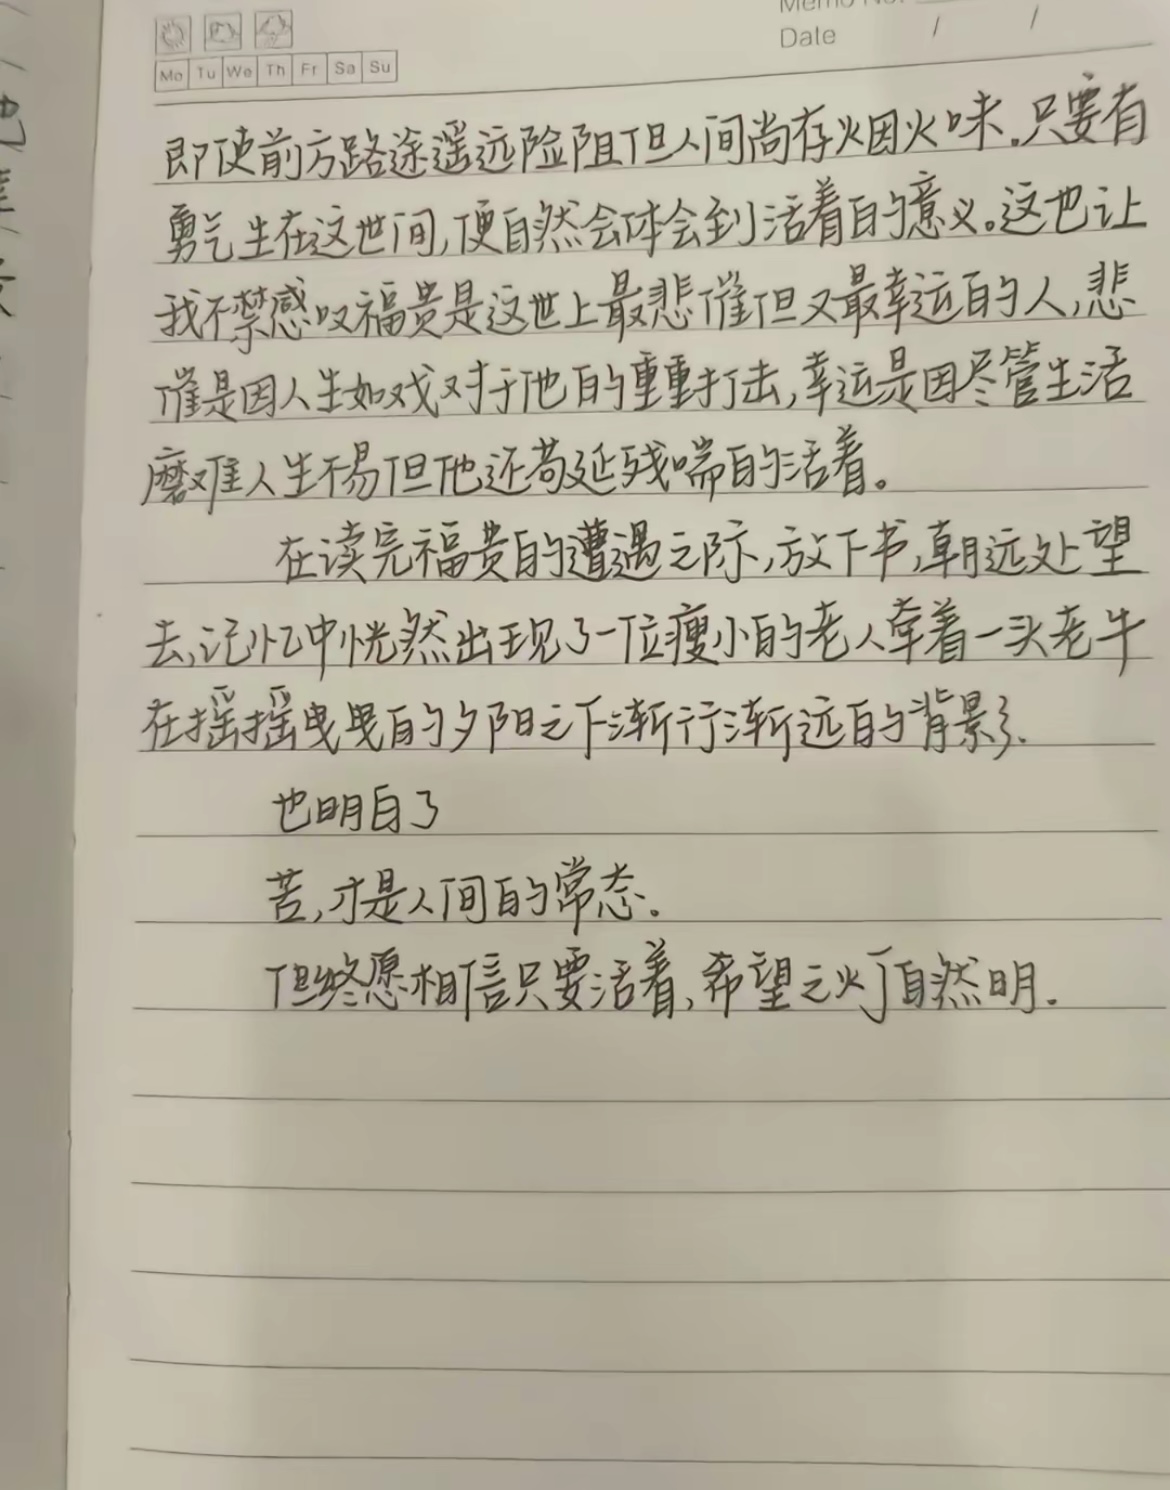 Memo No.
Date / /
Mo Tu We Th Fr Sa Su
即使前方路途遥远险阻但人间尚存火烟火味.只要有
勇气生在这世间,便自然会体会到活着的意义。这也让
我不禁感叹福贵是这世上最悲催但又最幸运的人,悲
催是因人生如戏对于他的重重打击,幸运是因尽管生活
磨难人生不易但他还苟延残喘的活着。
在读完福贵的遭遇之际,放下书,朝远处望
去,记忆中恍然出现了一位瘦小的老人牵着一头老牛
在摇摇曳曳的夕阳之下渐行渐远的背影.
也明白了
苦,才是人间的常态.
但终愿相信只要活着,希望之火自然明.